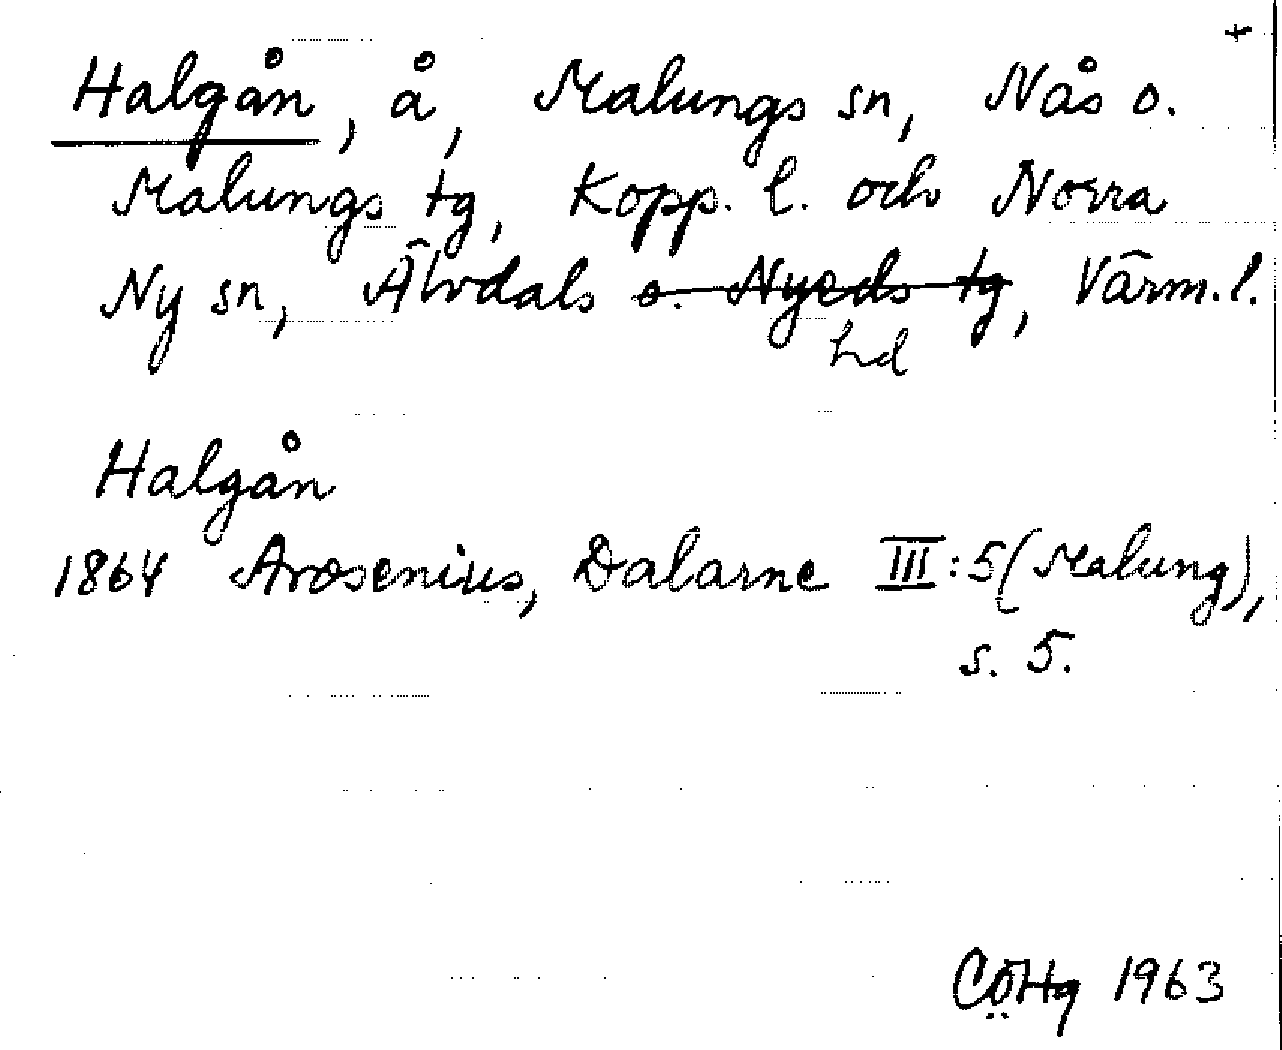 +
Halgån, å, Malungs sn, Nås o.
Malungs tg, Kopp. l. och Norra
Ny sn, Älvdals o. Nyeds tg, Värm. l.
hd
Halgån
1864 Arosenius, Dalarne III:5 (Malung),
s. 5.
CÖHg 1963